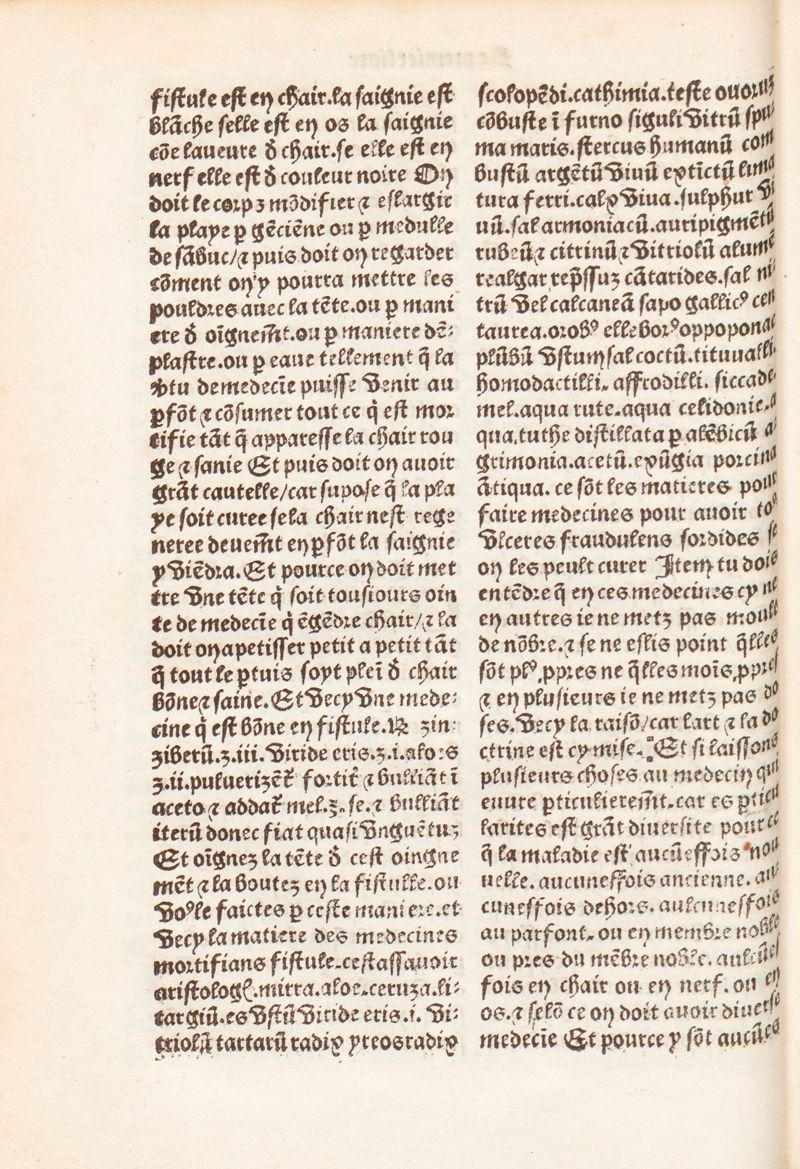 fistule est en chair.la saignie est
blãche selle est en os la saignie
cõe laueure d̕ chair.se elle est en
nerf elle est d̕ couleur noire On
doit le corpꝫ mõdifier ⁊ eslargir
la playe ꝑ gẽciẽne ou ꝑ medulle
de sãbuc/⁊ puis doit on regarder
cõment on y pourra mettre les
pouldres auec la tẽte.ou ꝑ mani
ere d̕ oĩgnem̃t.ou ꝑ maniere dẽ⸗
plastre.ou ꝑ eaue tellement q̃ la
v̓tu de medecĩe puisse venir au
ꝑfõt ⁊ cõsumer tout ce q̃ est mor
tifie tãt q̃ apparesse la chair rou
ge ⁊ sanie Et puis doit on auoir
grãt cautelle/car supose q̃ la pla
ye soit curee se la chair nest rege
neree deuem̃t en ꝑfõt la saignie
y viẽdra.Et pource on doit met
tre vne tẽte q̃ soit tousiours oin
te de medecĩe q̃ ẽgẽdre chair/⁊ la
doit on apetisser petit a petit tãt
q̃ tout le ꝑtuis soyt pleĩ d̕ chair
bõne ⁊ saine. Et vecy vne mede⸗
cine q̃ est bõne en fistule.℞ zin⸗
ziberũ.ʒ.iii. viride eris.ʒ.i.aloes
ʒ.ii.puluerizẽt̃ fortit̃ ⁊ bulliãt ĩ
aceto ⁊ addat̃ mel.ʒ.se.⁊ bulliãt
iterũ donec fiat quasi vnguẽtuꝫ
Et oĩgnez la tẽte d̕ cest oingne
mẽt ⁊ la boutez en la fistulle.ou
voꝰ le faictes ꝑ ceste maniere.et
vecy la matiere des medecines
mortifians fistule.cestassauoir
aristologꝭ.mirra.aloe.ceruza.li⸗
targiũ.es vstũ viride eris.i. vi⸗
triolũ tartarũ radix yreos radix
scolopẽdi.cathimia.teste ouoruꝫ
cõbuste ĩ furno figuli vitrũ spu
ma maris.stercus humanũ com
bustũ argẽtũ viuũ extĩctũ lima
tura ferri.calx viua.sulphur vi
uũ.sal armoniacũ.auripigmẽtũ
rubeũ ⁊ citrinũ ⁊ vitriolũ alumẽ
realgar rep̃ssuꝫ cãtarides.sal ni
trũ vel calcaneã sapo gallicꝰ cen
taurea.orobꝰ elleborꝰ oppoponaᵡ
plũbũ vstum sal coctũ.tituualli.
homodactilli. affrodilli. siccade
mel.aqua rute.aqua celidonie.a
qua.tuthe distillata ꝑ alẽbicũ a
grimonia.acetũ.exũgia porcina
ãtiqua. ce sõt les matieres pour
faire medecines pour auoir to⁹
vlceres fraudulens sordides se
on les peult curer Item tu doie
entẽdre q̃ en ces medecines cy ne
en autres ie ne metz pas moult
de nõbre.⁊ se ne eslis point q̃lles
sõt plꝰ ꝓpres ne q̃lles moĩs ꝓpres
⁊ en plusieurs ie ne metz pas do
ses. vecy la raisõ/car lart ⁊ la do
ctrine est cy mise. Et si laissons
plusieurs choses au medecin qui
euure ꝑticulierem̃t.car es ꝑticu
larites est grãt diuersite pource
q̃ la maladie est aucũeffois nou
uelle. aucuneffois ancienne. au
cuneffois dehors. aulcuneffois
au parfont. ou en membre noble
ou pres du mẽbre noble. aulcũes
fois en chair ou en nerf. ou en
os.⁊ selõ ce on doit auoir diuerse
medecĩe Et pource y sõt aucũes